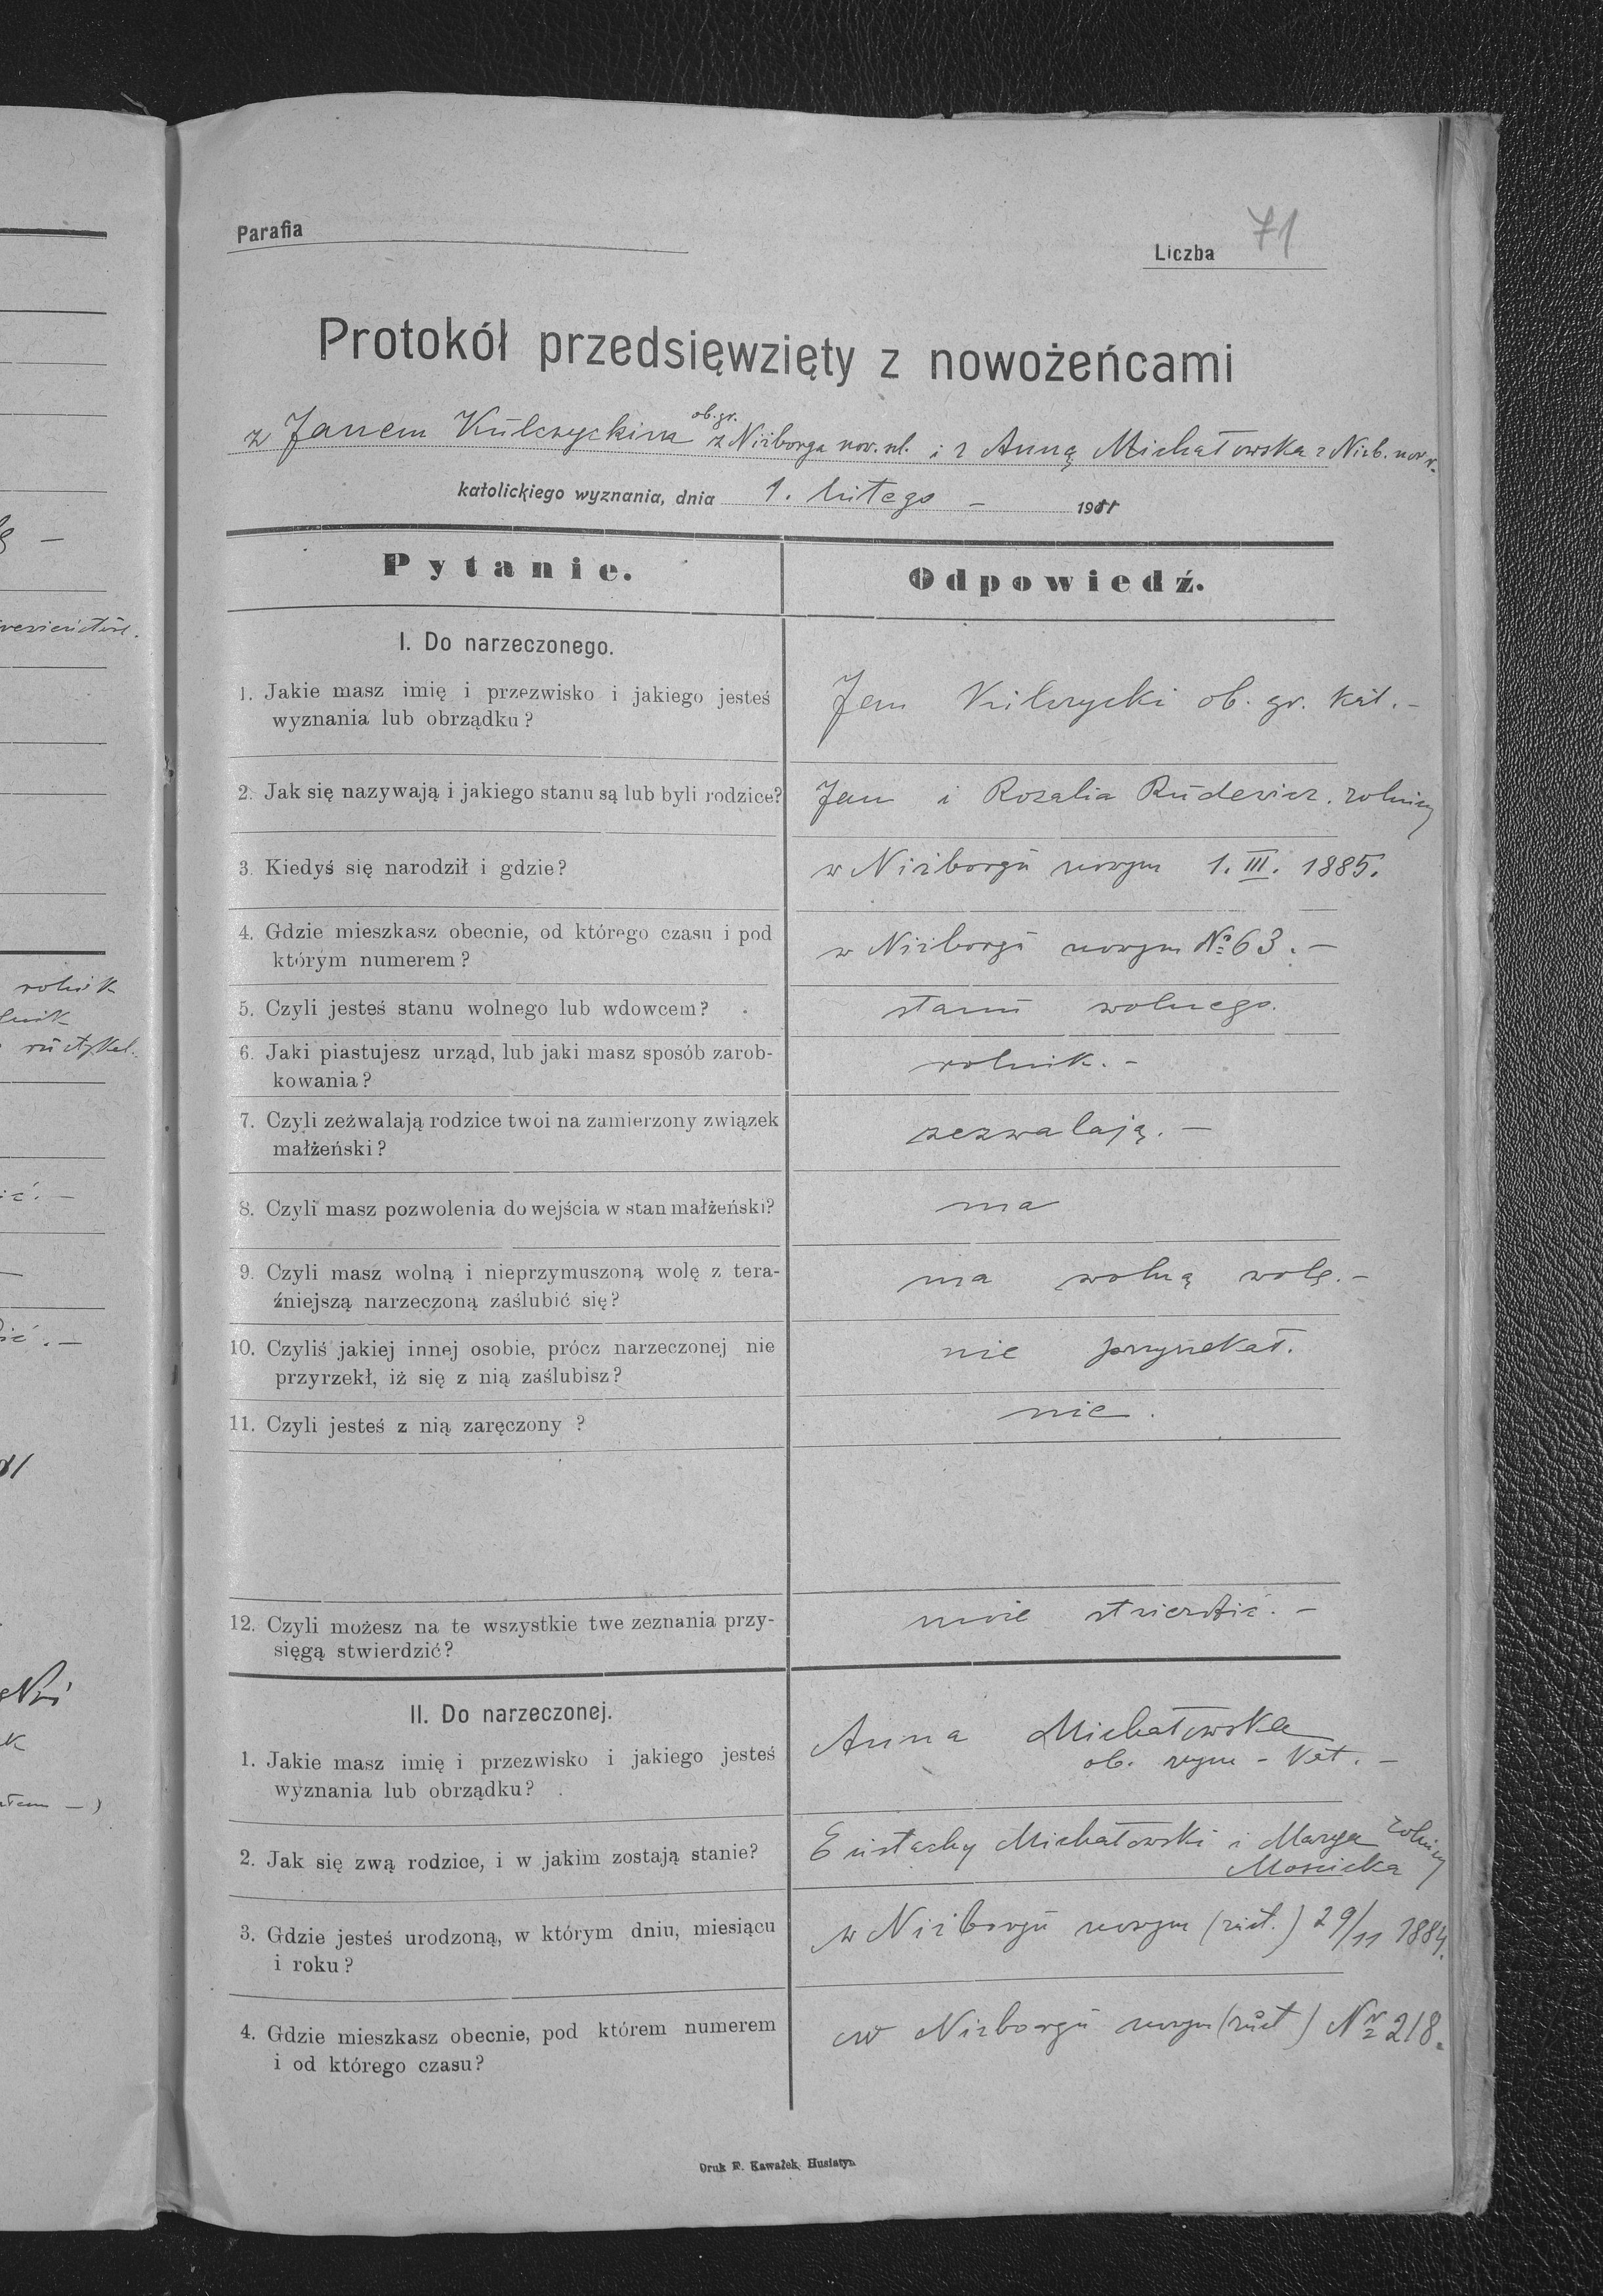 Parafia
Liczba 71
Protokół przedsięwzięty z nowożeńcami
ob. gr.
z Janem Kulczyckim z Niżborga now. i z Anną Michałowska z Niżb. now.
katolickiego wyznania, dnia 1. lutego – 1911
Pytanie.
Odpowiedź.
I. Do narzeczonego.
1. Jakie masz imię i przezwisko i jakiego jesteś
wyznania lub obrządku?
Jan Kulczycki ob. gr. kat. –
2. Jak się nazywają i jakiego stanu są lub byli rodzice?
Jan i Rozalia Rudewicz. rolnicy
3. Kiedyś się narodził i gdzie?
w Niżborgu nowym 1. III. 1885.
4. Gdzie mieszkasz obecnie, od którego czasu i pod
którym numerem?
w Niżborgu nowym No 63. –
5. Czyli jesteś stanu wolnego lub wdowcem?
stanu wolnego.
6. Jaki piastujesz urząd, lub jaki masz sposób zarob-
kowania?
rolnik. –
7. Czyli zeżwalają rodzice twoi na zamierzony związek
małżeński?
zezwalają. –
8. Czyli masz pozwolenia do wejścia w stan małżeński?
ma
9. Czyli masz wolną i nieprzymuszoną wolę z tera-
źniejszą narzeczoną zaślubić się?
ma wolną wolę. –
10. Czyliś jakiej innej osobie, prócz narzeczonej nie
przyrzekł, iż się z nią zaślubisz?
nie przyrzekał.
11. Czyli jesteś z nią zaręczony ?
nie.
12. Czyli możesz na te wszystkie twe zeznania przy-
sięgą stwierdzić?
może stwierdzić. –
II. Do narzeczonej.
1. Jakie masz imię i przezwisko i jakiego jesteś
wyznania lub obrządku?
Anna Michałowska
ob. rzym – kat. –
2. Jak się zwą rodzice, i w jakim zostają stanie?
Eustachy Michałowski i Marya rolnicy
Mościcka
3. Gdzie jesteś urodzoną, w którym dniu, miesiącu
i roku?
w Niżborgu nowym (rust.) 29/11 1884.
4. Gdzie mieszkasz obecnie, pod którem numerem
i od którego czasu?
w Niżborgu nowym (rust) Nr 218.
Druk F. Kawałek Husiatyn